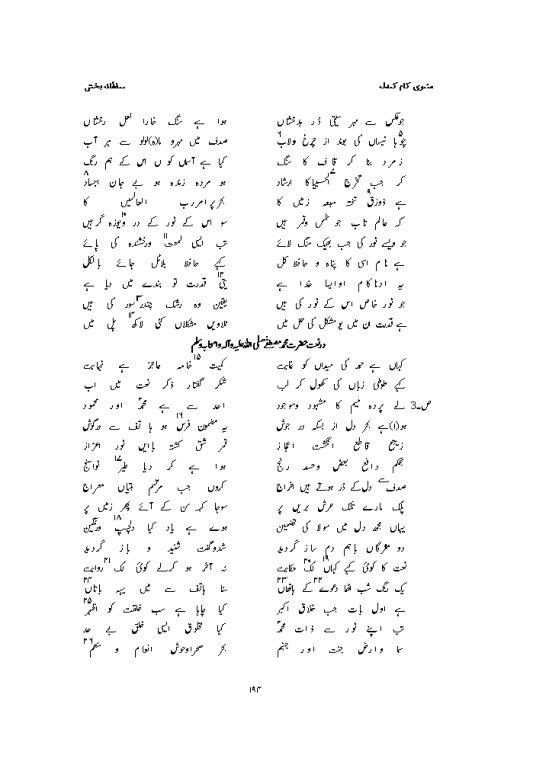 مثنوی کام کندلہ سلطانہ بخش
جو عکس سے مہر سیتی در بدخشاں ہوا ہے سنگ خارا لعل رخشاں
چو ہا نیساں کی بوند از چرخ دولاب صدف میں مہرو لولو سے ہر آب
زمرد بنا کر قاف کا سنگ کیا ہے آسماں کوں اس کے ہم رنگ
کر جب تخرج ارشاد ہو مردہ زندہ ہو بے جان
ہے تختہ سبعہ زمیں کا بحر پر امر رب العالمیں کا
کہ عالم تاب جو شمس و قمر ہیں سو اس کے نور کے در گر ہیں
جو ویسے نور کی جب بھیک منگ لائے تب ایسی درخشندہ کی پائے
ہے نام اسی کا پناہ و حافظ کل کہے حافظ بلاٹل جائے بالکل
یہ ادنا کام اوایسا خدا ہے قدرت تو بندے میں دیا ہے
جو نور خاص اس کے نور کی ہیں یقین وہ رشک چندر سور کی ہیں
ہے قدرت ان میں یو مشکل کی حل میں مشکلاں کئی لاکھ پل میں
در نعت حضرت محمد مصطفیٰ صلی اللہ علیہ وآلہ واصحابہ وسلم
کہاں ہے حمد کی میداں کو غایت کمیت خامہ عاجز ہے نہایت
کہے طوطی زباں کی کھول کر لب شکر گفتار ذکر نعت میں اب
ص۔3 لے پردہ میم کا مشہود و موجود احد سے ہے محمدؐ اور محمود
ہو(ا) ہے بحر دل از بسکہ در جوش یہ مضمون ہو ہاتف سے درگوش
زہیے قاطع انگشت اعجاز قمر شق گشتہ باایں نور اعزاز
بحکم دافع بغض و حسد رنج ہوا ہے کر دیا طیر نواسنج
صدف سے دل کے در ہوتے ہیں اخراج کروں جب مرقم بتیاں معراج
پلک مارے تلک عرش بریں پر سوجا کہہ سن کے آئے پھر زمیں پر
یہاں مجھ دل میں مولا کی تضمین ہوے ہے یاد کیا دلچسپ ورنگین
دو مژگاں باہم دم ساز گردید شدو گفت شنید و باز گردید
نعت کا کوئی کہے کہاں لگ حکایت نہ آخر ہو کرلے کوئی لک روایت
یک رنگ شب اٹھا دعوے کے ہاتھاں سنا ہاتف سے میں یہہ باتاں
ہے اول بات جب خلاق اکبر کیا چاہا ہے سب خلقت کو اظہر
تب اپنے نور سے ذات محمدؐ کیا مخلوق ایسی خلق بے حد
سما و ارض جنت اور جہنم بحر صحرا و حوش انعام و
۱۹۴